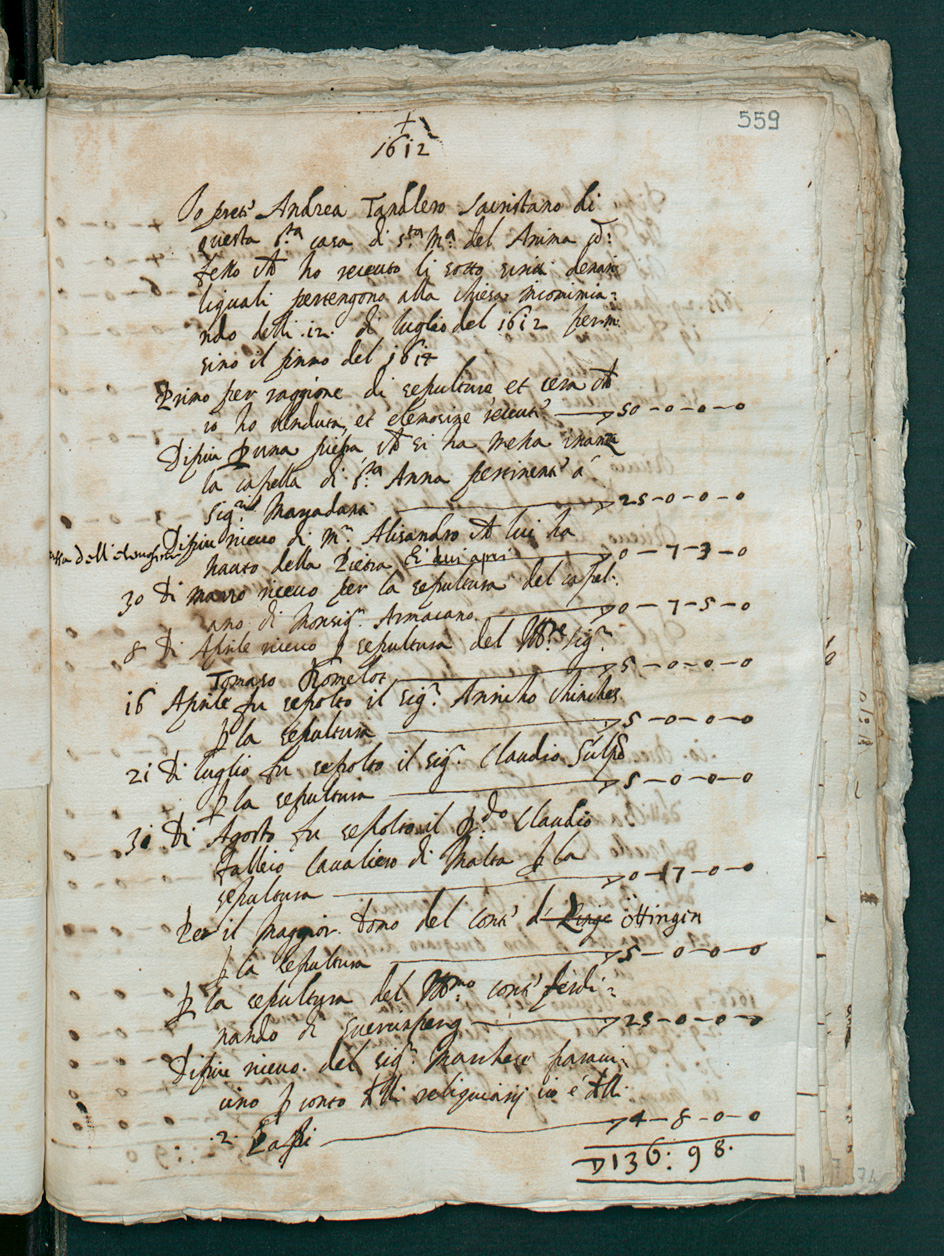 559
+
1612
Io pret' Andrea Tandlero Sacristano di
questa s.ta casa di s.ta M.a del Anima
ho receuto li sotto denari
liquali pertengono alla chiesa incomincia:
ndo delli .12. di luglio del 1612 per in
sino il primo del 1614
Primo per raggione di sepulture et cera
io ho venduta, et elemosine 50 - 0 - 0 - 0
Di piu una pietra, si ha messa inanzi
la capella di s.ta Anna pertinent' a
sig.ri 25 - 0 - 0 - 0
Di piu riceuo di m.r Alisandro lui ha
hauto della Pietra 0 - 7 - 3 - 0
30 Di marzo riceuo per la sepultura del capel:
ano di Monsig.r 0 - 7 - 5 - 0
8 Di Aprile riceuo p sepultura del sig.r
Tomaso Romelot 5 - 0 - 0 - 0
16 Aprile fu sepolto il sig.r
p la sepultura 5 - 0 - 0 - 0
21 Di luglio fu sepolto il sig.r Claudio
p la sepultura 5 - 0 - 0 - 0
30 Di Agosto fu sepolto il Claudio
Cavaliero di Malta p la
sepultura 0 - 17 - 0 - 0
Per il maggior domo del Cont' d' ottingin
p la sepultura 5 - 0 - 0 - 0
p la sepultura del cont' ferdi:
nando di 25 - 0 - 0 - 0
Di piu riceuo del sig.r Marchese
p conto delli cio e delli
.2. 4 - 8 - 0 - 0
D 136: 98.